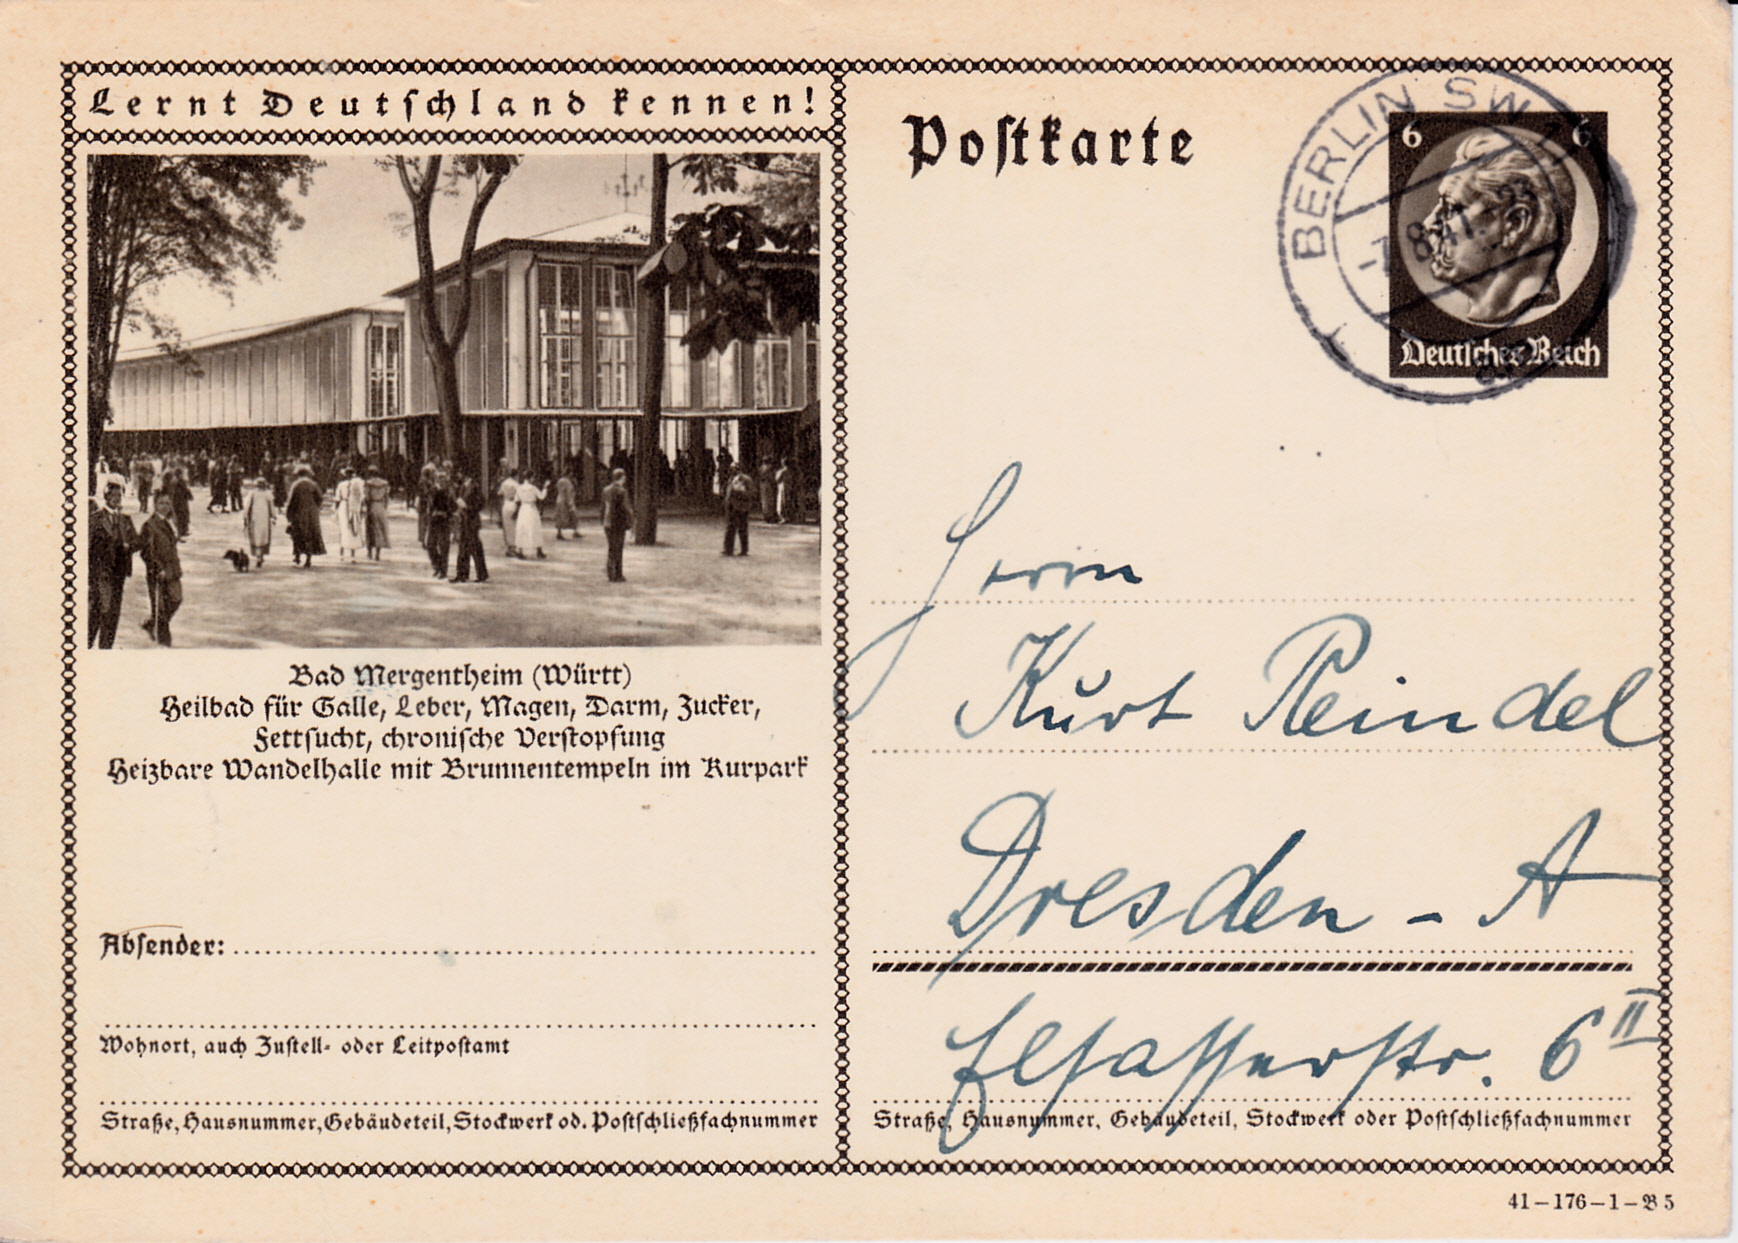 Lernt Deutschland kennen!
Bad Mergentheim (Württ)
Heilbad für Galle, Leber, Magen, Darm, Zucker,
Fettsucht, chronische Verstopfung
Heizbare Wandelhalle mit Brunnentempeln im Kurpark
Absender:
Wohnort, auch Zustell- oder Leitpostamt
Straße, Hausnummer, Gebäudeteil, Stockwerk od. Postschließfachnummer
Postkarte
BERLIN SW
6 6
Deutsches Reich
Herrn
Kurt Reindel
Dresden - A
Elsasserstr. 6 II
Straße, Hausnummer, Gebäudeteil, Stockwerk oder Postschließfachnummer
41-176-1-B 5